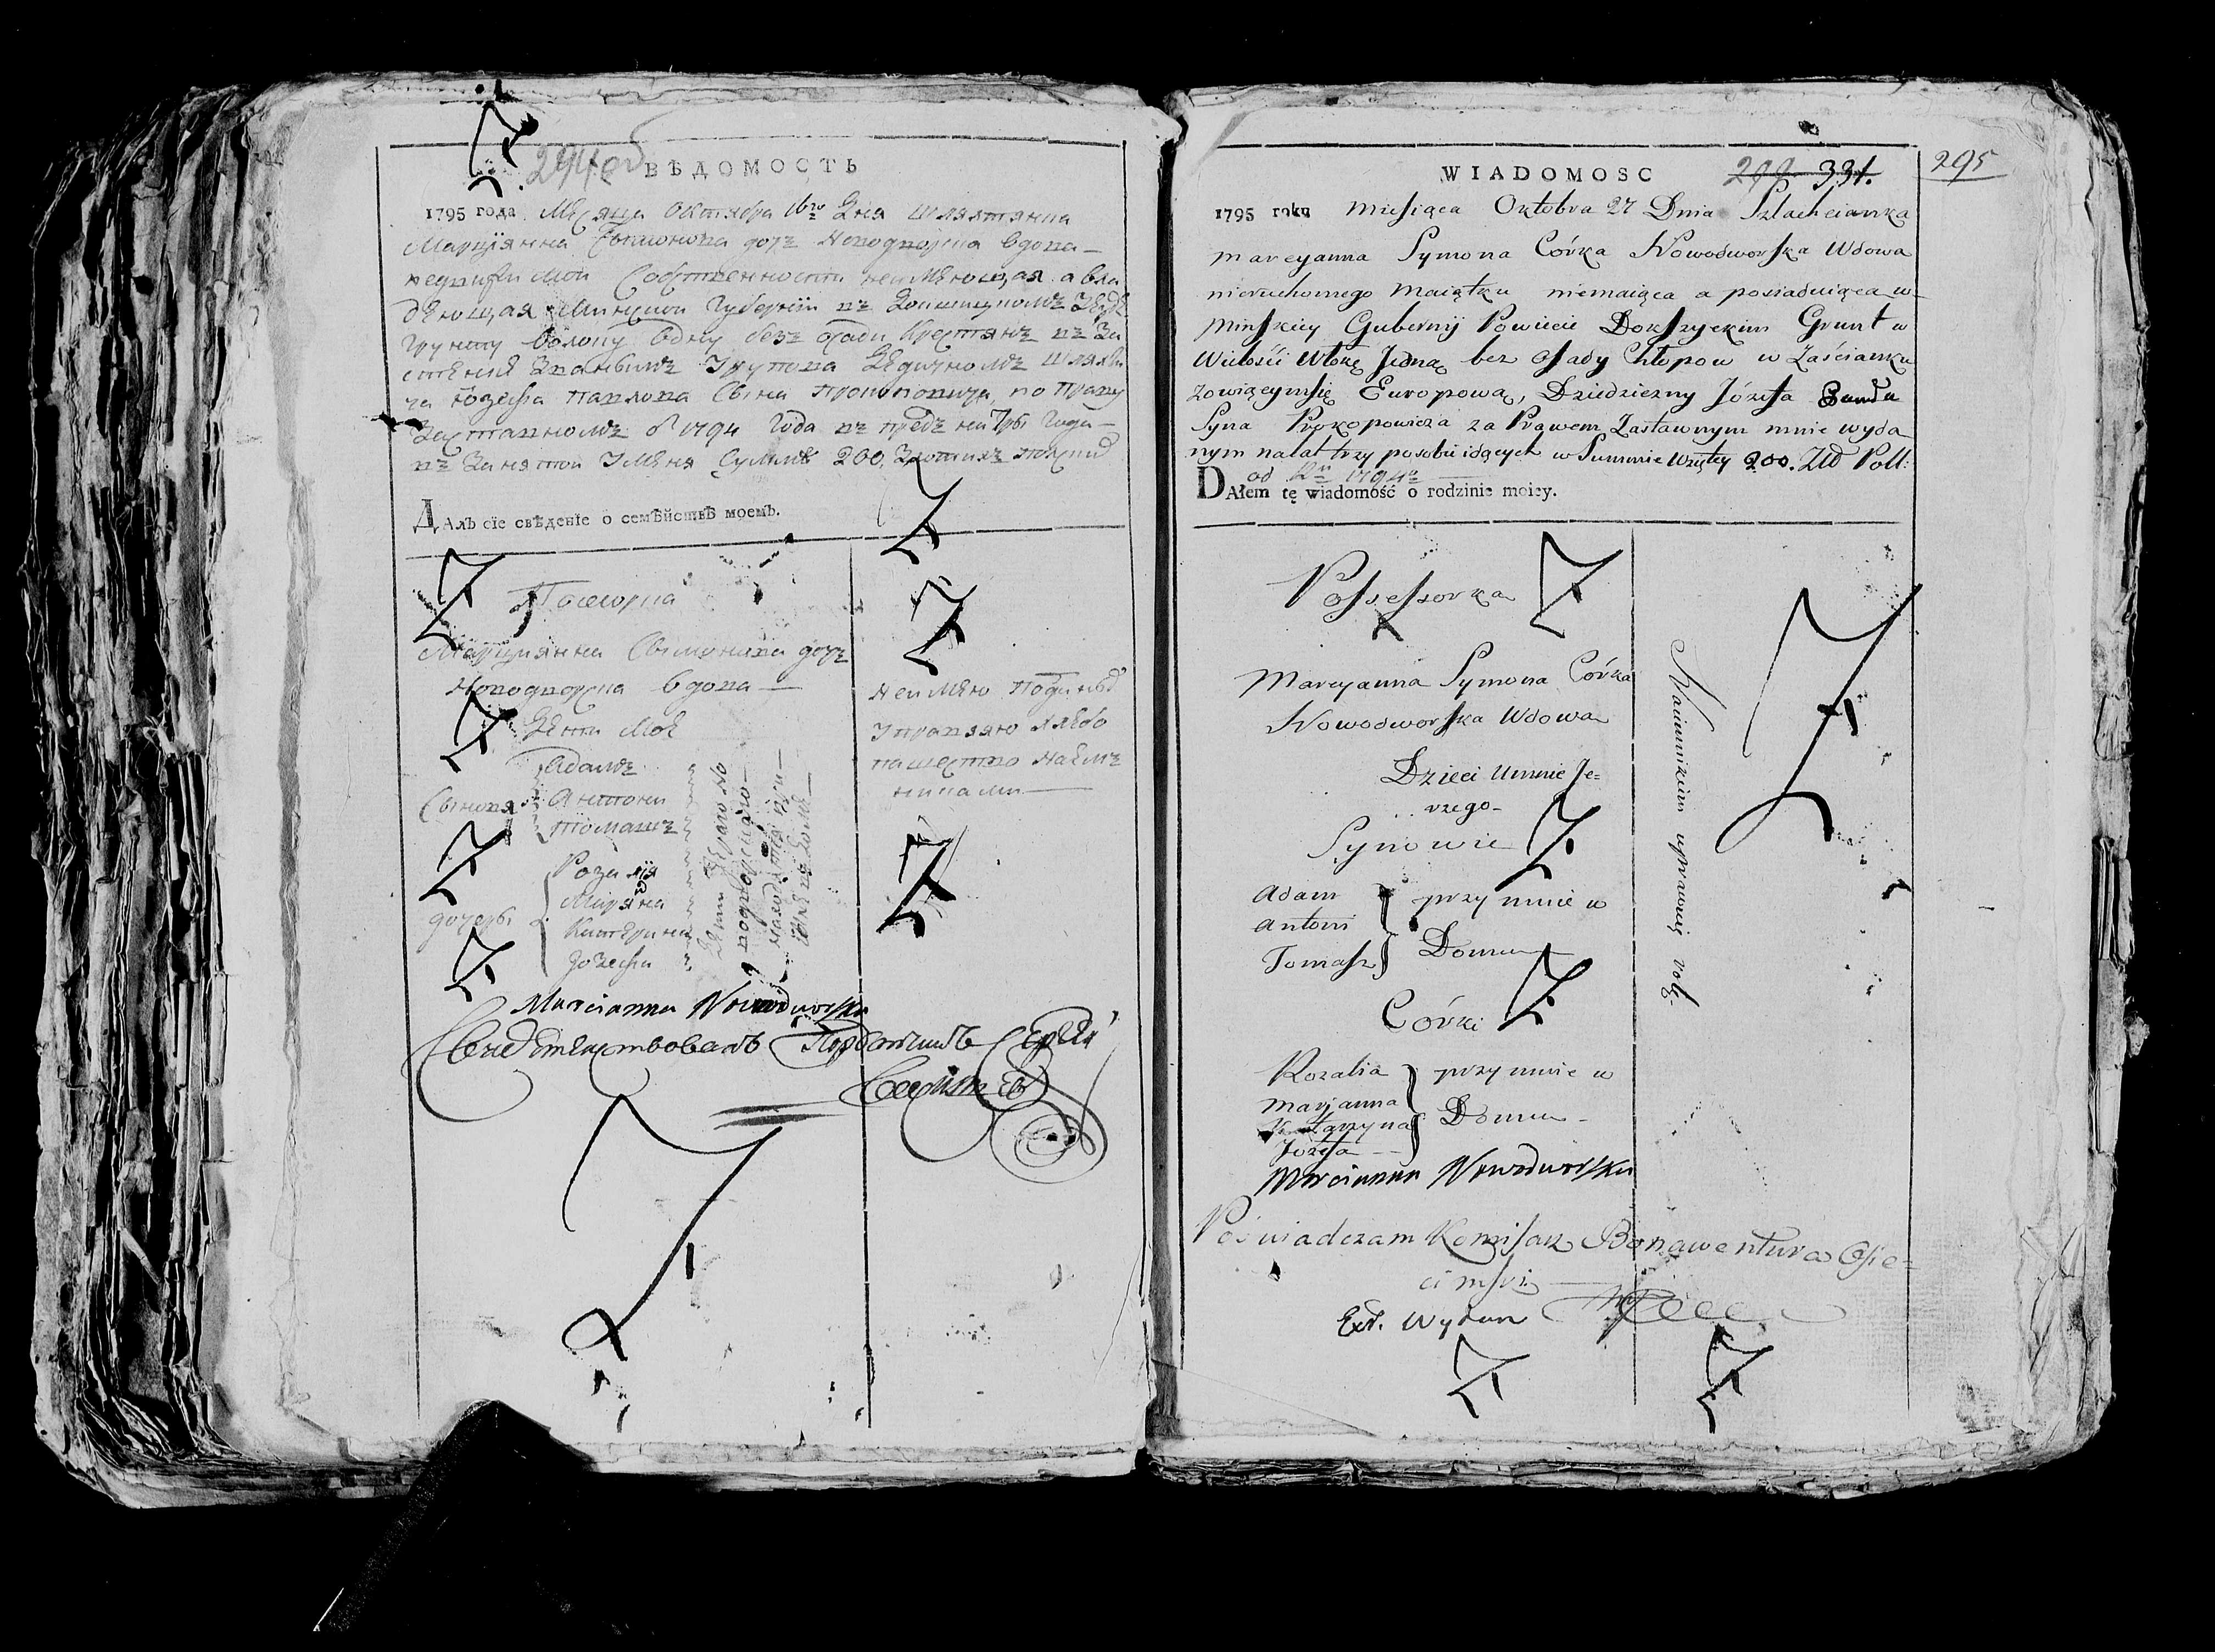 294 об
ВѢДОМОСТЬ
1795 года Месяца Октября 16го Дня шляхтянка
Марцiянна Сымонова дочъ Новодворска вдова
недвижимои Собственности неимѣющая а вла
дѣющая Минскои Губернiи въ Докшицкомъ Уездѣ
грунту волоку одну безъ осади Крестянъ въ За
стенкѣ Званвымъ Уедичномъ шляхти
ча Юзефа Павлова Сына Прокоповича, по Праву
Заставномъ 1794 Года въ предъ на Три Года
въ Занятои Суммѣ 200, Злотихъ полских
Далъ сiе свѣденiе о семѣйствѣ моемъ.
Марциянна Сымонова дочъ
Новодворска вдова
Дети Мое
Сыновя
Адамъ
Антони
Томашъ
дочеры
Розалiя
Марянна
Катерина
Юзефа
неимѣю Подданых
Управляю хлебо
пашество наемъ
никами
Marcianna Nowodworska
Свидетельствовалъ Порутчикъ Сергѣй
WIADOMOSC
299 331.
295
1795 roku Miesiąca Oktobra 27 Dnia Szlachcianka
Marcyanna Symona Córka Nowodworska Wdowa
nieruchomego Maiątku niemaiąca a posiaduiąca w
Minskiey Gubernij Powiecie Dokszyckim Grunt w
Wielości Włokę Jedną bez Osady Chłopow w Zaścianku
zowiącymsię Europową, Dziedziczny Józefa Pawła
Syna Prokopowicza za Prawem Zastawnym mnie wyda
nym na lat trzy posobie idących w Summie Wziętey 200. Złł Poll:
od Rᵘ 1794ᵒ
DAłem tę wiadomość o rodzinie moiey.
Possessorka
Marcyanna Symona Córka
Nowodworska Wdowa
Dzieci Umnie Je=
rzego
Synowie
Adam
Antoni
Tomasz
przy mnie w
Domu
Córki
Rozalia
Maryanna
Katarzyna
Józefa
przy mnie w
Domu
Naiemnikim uprawuię rolę.
Marcianna Nowodworska
Poświadczam Komisarz Bonawentura Osie=
cimski
Ext. Wydan